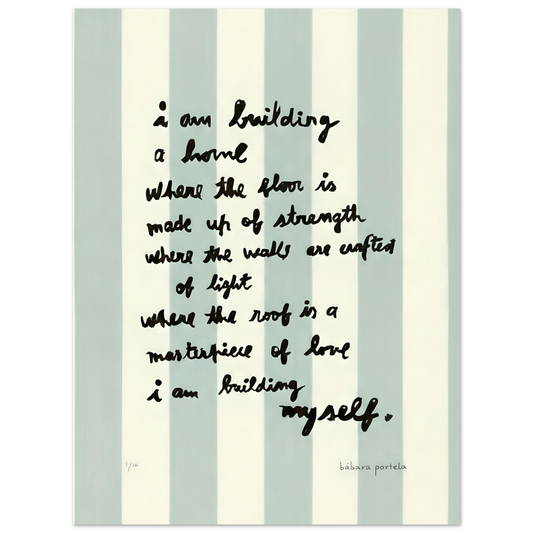 i am building
a home
where the floor is
made up of strength
where the walls are crafted
of light
where the roof is a
masterpiece of love
i am building
myself.
bábara portela